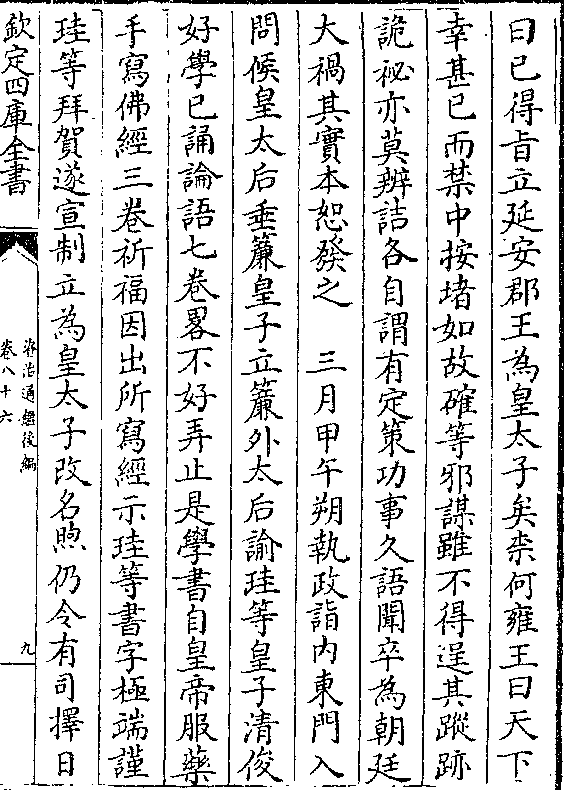 曰已得旨立延安郡王為皇太子矣柰何雍王曰天下
幸甚已而禁中按堵如故確等邪謀雖不得逞其蹤跡
詭祕亦莫辨詰各自謂有定策功事久語聞卒為朝廷
大禍其實本恕發之　三月甲午朔執政詣内東門入
問候皇太后垂簾皇子立簾外太后諭珪等皇子清俊
好學已誦論語七卷畧不好弄止是學書自皇帝服藥
手寫佛經三卷祈福因出所寫經示珪等書字極端謹
珪等拜賀遂宣制立為皇太子改名煦仍令有司擇日
欽定四庫全書
資治通鑑後編
卷八十六
九